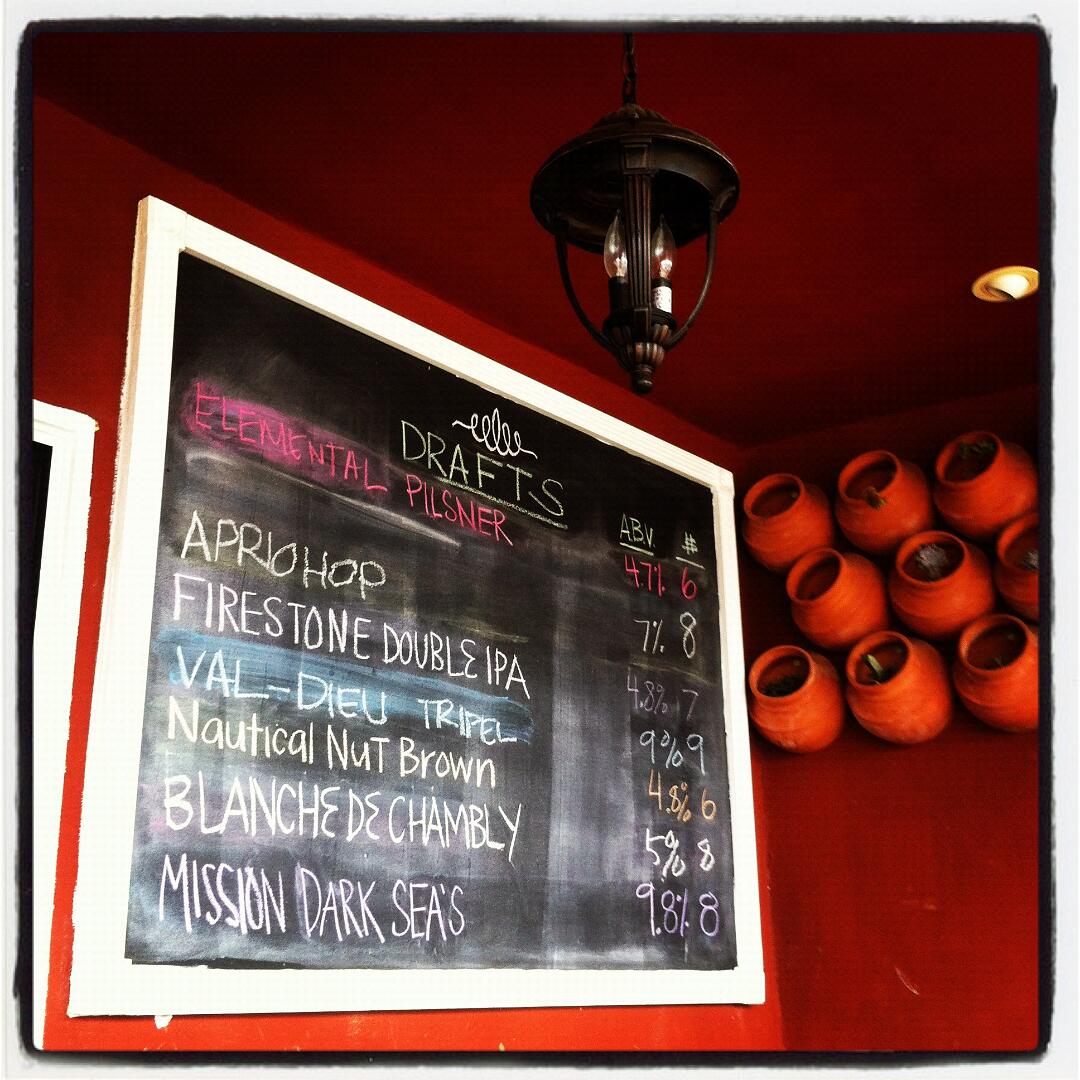 DRAFTS
A.B.V. #
ELEMENTAL PILSNER 4.7% 6
APRIOHOP 7% 8
FIRESTONE DOUBLE IPA 4.8% 7
VAL-DIEU TRIPEL 9% 9
Nautical Nut Brown 4.8% 6
BLANCHE DE CHAMBLY 5% 8
MISSION DARK SEA'S 9.8% 8